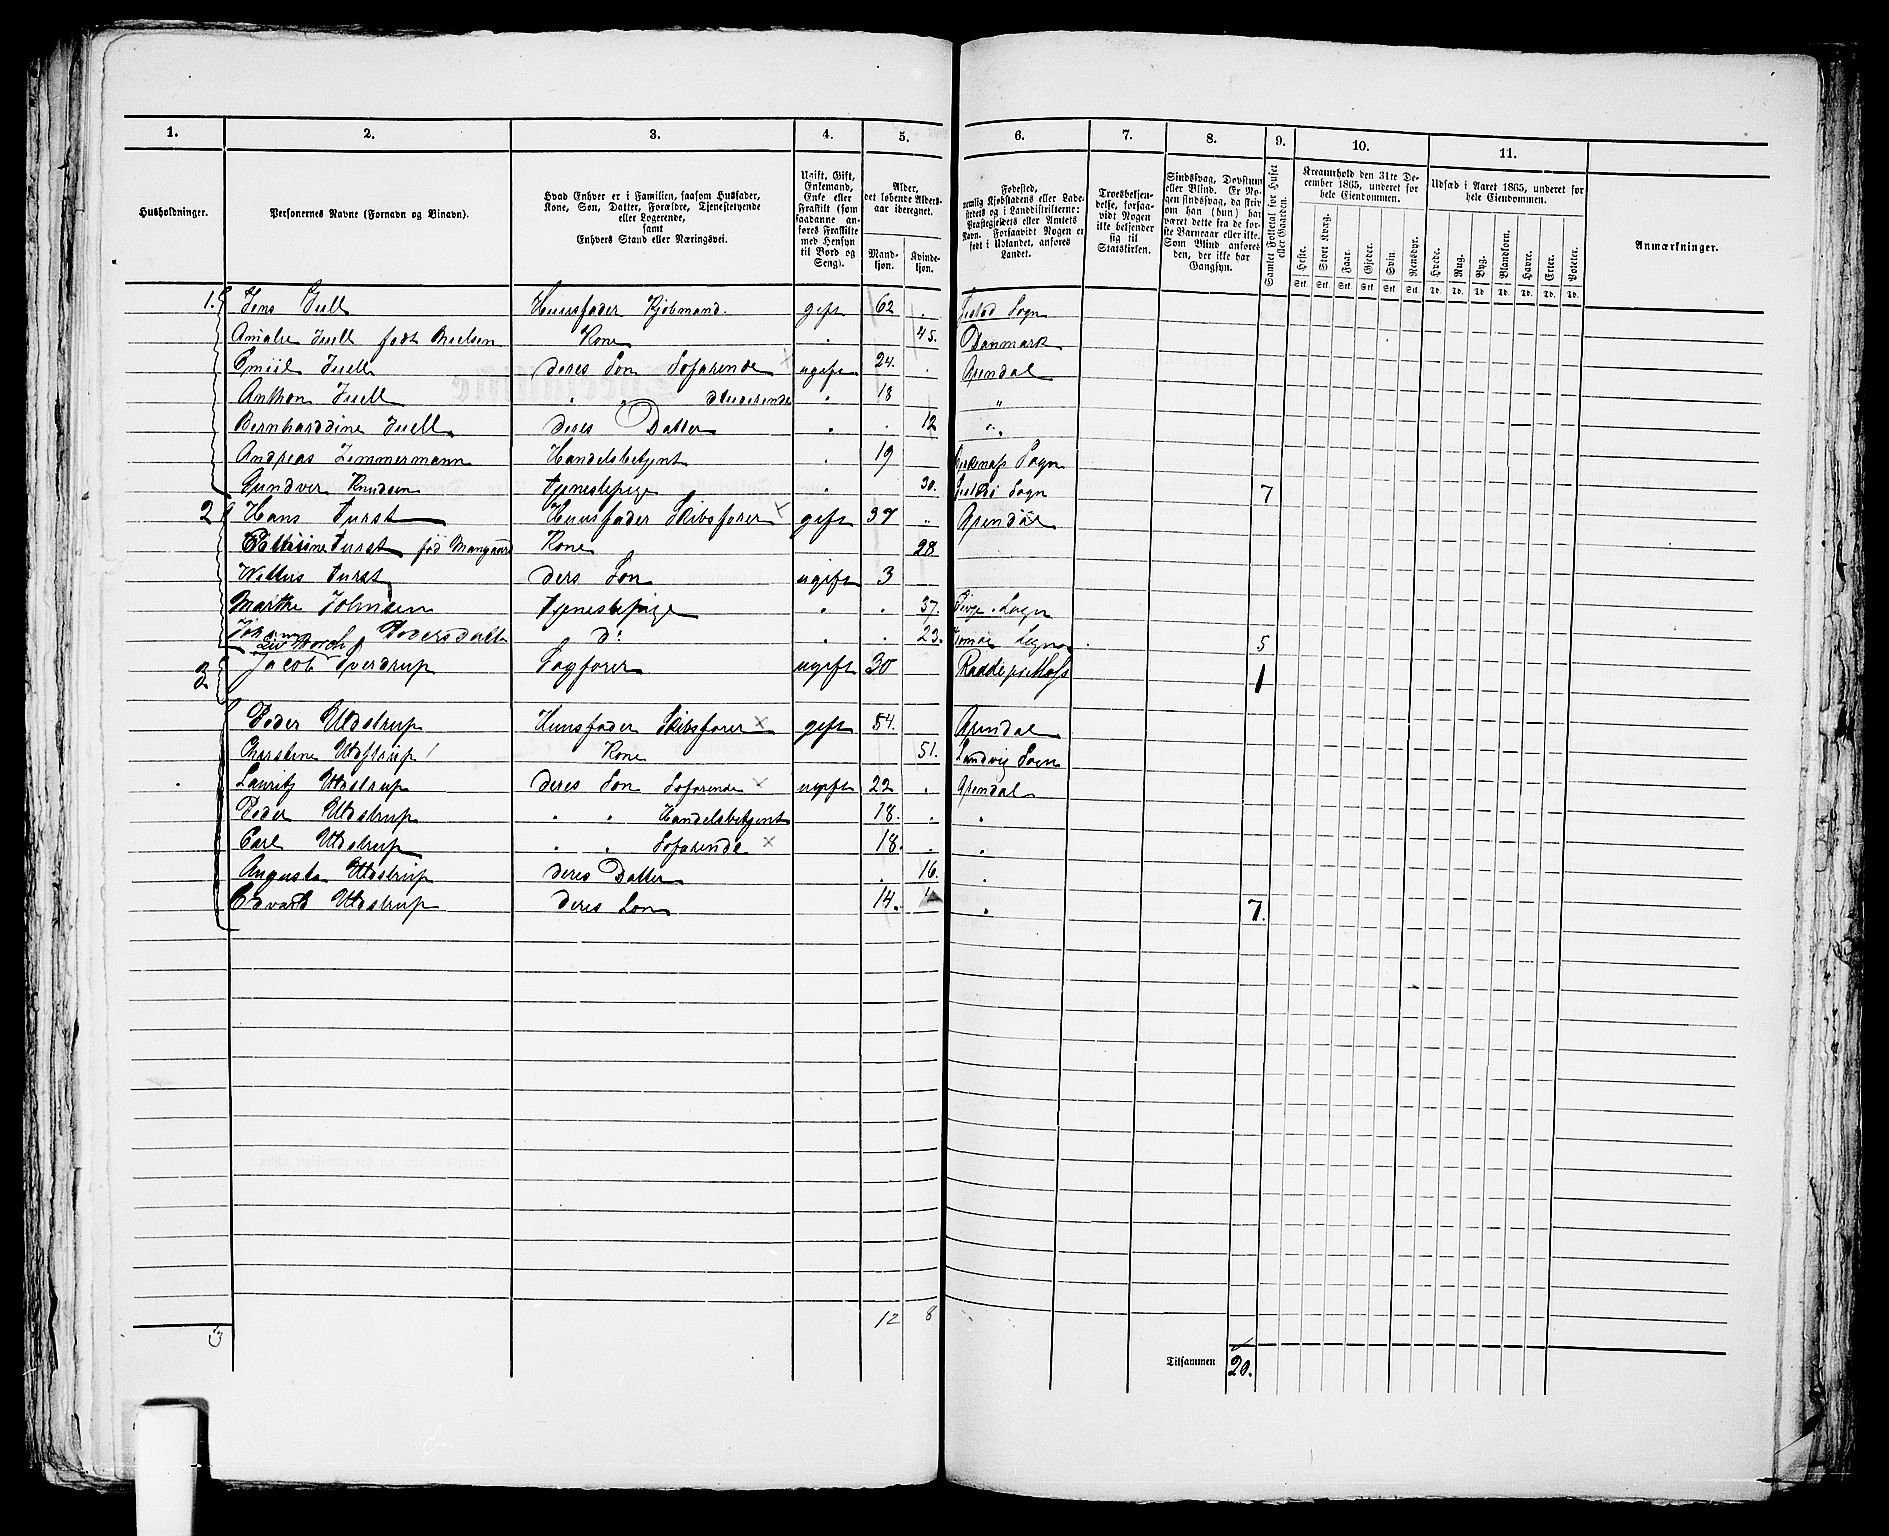 1. 2. 3. 4. 5. 6. 7. 8. 9. 10. 11.
Husholdninger.
Personernes Navne (Fornavn og Binavn).
Hvad Enhver er i Familien, saasom Husfader,
Kone, Søn, Datter, Forældre, Tjenestetyende
eller Logerende,
samt
Enhvers Stand eller Næringsvei.
Ugift, Gift,
Enkemand,
Enke eller
Fraskilt (som
saadanne an-
føres Fraskilte
med Hensyn
til Bord og
Seng).
Alder,
det løbende Alders-
aar iberegnet.
Mand-
kjøn.
Kvinde-
kjøn.
Fødested,
nemlig Kjøbstadens eller Lade-
stedets og i Landdistrikterne:
Præstegjeldets eller Amtets
Navn. Forsaavidt Nogen er
født i Udlandet, anføres
Landet.
Troesbekjen-
delse, forsaa-
vidt Nogen
ikke bekjender
sig til
Statskirken.
Sindssvag, Døvstum
eller Blind. Er No-
gen sindssvag, da skriv
om han (hun) har
været dette fra de før-
ste Barneaar eller ikke.
Som Blind anføres
den, der ikke har
Gangsyn.
Samlet Folketal for Huset
eller Gaarden.
Kreaturhold den 31te De-
cember 1865, underet for
hele Eiendommen.
Heste. Stort Kvæg. Faar. Gjeder. Svin. Rensdyr.
Stk. Stk. Stk. Stk. Stk. Stk.
Udsæd i Aaret 1865, underet for
hele Eiendommen.
Hvede. Rug. Byg. Blandkorn. Havre. Erter. Poteter.
Td. Td. Td. Td. Td. Td. Td.
Anmærkninger.
1. Jens Juell Huusfader Kjøbmand. gift 62 . Sogn
Amalie Juell født Nielsen Kone . 45. Danmark
Emiil Juell deres Søn Søfarende × ugift 24. . Arendal
Anthon Juell " " Studerende " 18 "
Bernharddine Juell. deres Datter . . 12 "
Andreas Zimmermann Handelsbetjent . 19 Sogn
Gundver Knudsen Tjenestepige . 30. Sogn 7
2 Hans Furst Huusfader Skibsfører × gift 37 " Arendal
Furst fød Kone 28
Furst Ders Søn ugift 3
Marthe Johnsen Tjenestepige . . 37. Sogn
Johanne Pedersdatter do . . 23. Sogn 5
3 Jacob Sverdrup Sagfører ugift 30 1
Peder Udstrup Huusfader Skibsfører × gift 54. Arendal
Udstrup Kone 51. Landvig Sogn
Lauritz Udstrup Deres Søn Søfarende × ugift 22 . Arendal
Peder Udstrup " " Handelsbetjent 18. . "
Carl Udstrup " " Søfarende × 18. . "
Augusta Udstrup deres Datter . 16. "
Edvard Udstrup deres Søn 14. " 7.
3 12 8
Tilsammen 20.